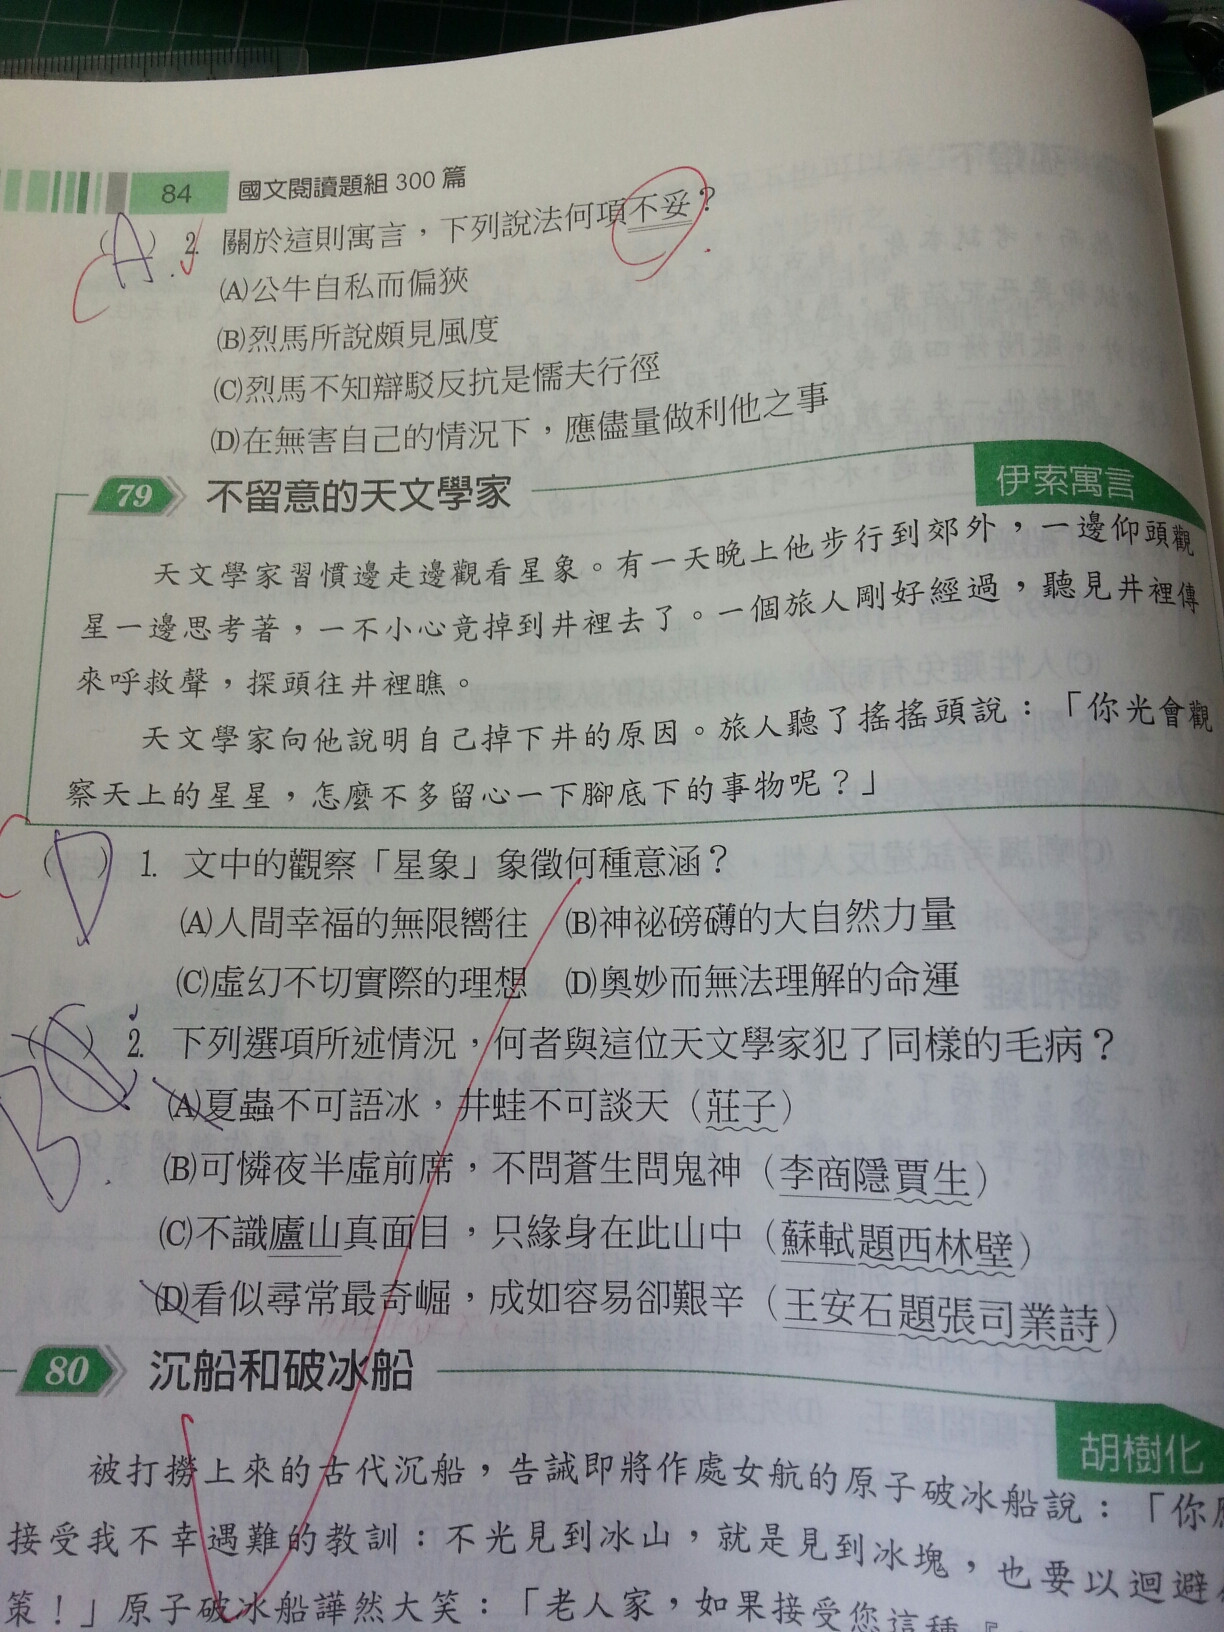 84 國文閱讀題組 300 篇
(A) 2. 關於這則寓言，下列說法何項不妥？
C
(A)公牛自私而偏狹
(B)烈馬所說頗見風度
(C)烈馬不知辯駁反抗是懦夫行徑
(D)在無害自己的情況下，應儘量做利他之事
79 不留意的天文學家
伊索寓言
天文學家習慣邊走邊觀看星象。有一天晚上他步行到郊外，一邊仰頭觀
星一邊思考著，一不小心竟掉到井裡去了。一個旅人剛好經過，聽見井裡傳
來呼救聲，探頭往井裡瞧。
天文學家向他說明自己掉下井的原因。旅人聽了搖搖頭說：「你光會觀
察天上的星星，怎麼不多留心一下腳底下的事物呢？」
C
(D) 1. 文中的觀察「星象」象徵何種意涵？
(A)人間幸福的無限嚮往 (B)神祕磅礴的大自然力量
(C)虛幻不切實際的理想 (D)奧妙而無法理解的命運
( ) 2. 下列選項所述情況，何者與這位天文學家犯了同樣的毛病？
B
(A)夏蟲不可語冰，井蛙不可談天（莊子）
(B)可憐夜半虛前席，不問蒼生問鬼神（李商隱賈生）
(C)不識廬山真面目，只緣身在此山中（蘇軾題西林壁）
(D)看似尋常最奇崛，成如容易卻艱辛（王安石題張司業詩）
80 沉船和破冰船
胡樹化
被打撈上來的古代沉船，告誡即將作處女航的原子破冰船說：「你
接受我不幸遇難的教訓：不光見到冰山，就是見到冰塊，也要以迴避
策！」原子破冰船譁然大笑：「老人家，如果接受您這種『